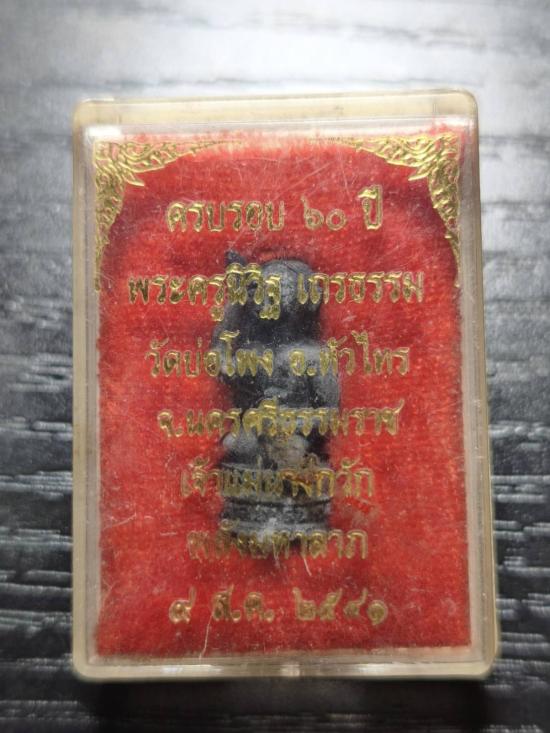 ครบรอบ ๖๐ ปี
พระครูนิวิฐ เถรธรรม
วัดบ่อโพง อ.หัวไทร
จ.นครศรีธรรมราช
เจ้าแม่นางกวัก
พลังมหาลาภ
๙ ส.ค. ๒๕๔๑